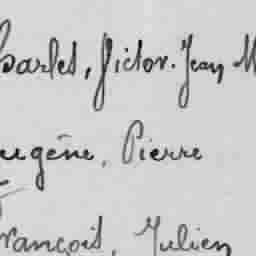 Charles, Victor. Jean M
Eugène, Pierre
François, Julien